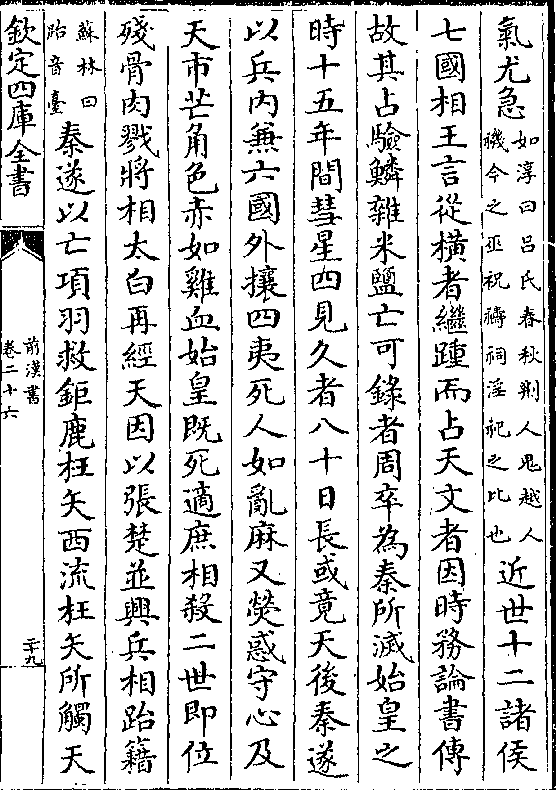 氣尤急如淳曰呂氏春秋荆人鬼越人
禨今之巫祝禱祠淫祀之比也近世十二諸侯
七國相王言從橫者繼踵而占天文者因時務論書傳
故其占驗鱗雜米鹽亡可録者周卒為秦所滅始皇之
時十五年間彗星四見久者八十日長或竟天後秦遂
以兵内兼六國外攘四夷死人如亂麻又熒惑守心及
天市芒角色赤如雞血始皇既死適庶相殺二世即位
殘骨肉戮將相太白再經天因以張楚並興兵相跆籍
蘇林曰
跆音臺秦遂以亡項羽救鉅鹿枉矢西流枉矢所觸天
欽定四庫全書
前漢書
卷二十六
二十九